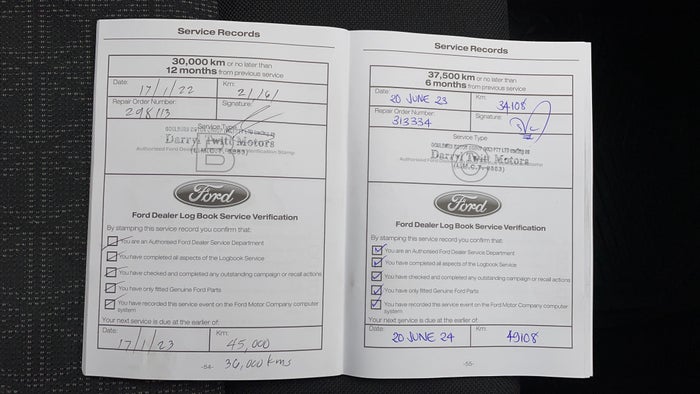 Service Records
30,000 km or no later than
12 months from previous service
Date: 17/1/22
Km: 21161
Repair Order Number: 298113
Signature:
Service Type
Darryl Twitt Motors
(L.M.C.T. 9353)
B
Ford
Ford Dealer Log Book Service Verification
By stamping this service record you confirm that:
You are an Authorised Ford Dealer Service Department
You have completed all aspects of the Logbook Service
You have checked and completed any outstanding campaign or recall actions
You have only fitted Genuine Ford Parts
You have recorded this service event on the Ford Motor Company computer
system
Your next service is due at the earlier of:
Date: 17/1/23
Km: 45,000
36,000 kms
-54-
Service Records
37,500 km or no later than
6 months from previous service
Date: 20 JUNE 23
Km: 34108
Repair Order Number: 313334
Signature:
Service Type
Darryl Twitt Motors
(L.M.C.T. 9353)
Ford
Ford Dealer Log Book Service Verification
By stamping this service record you confirm that:
You are an Authorised Ford Dealer Service Department
You have completed all aspects of the Logbook Service
You have checked and completed any outstanding campaign or recall actions
You have only fitted Genuine Ford Parts
You have recorded this service event on the Ford Motor Company computer
system
Your next service is due at the earlier of:
Date: 20 JUNE 24
Km: 49108
-55-